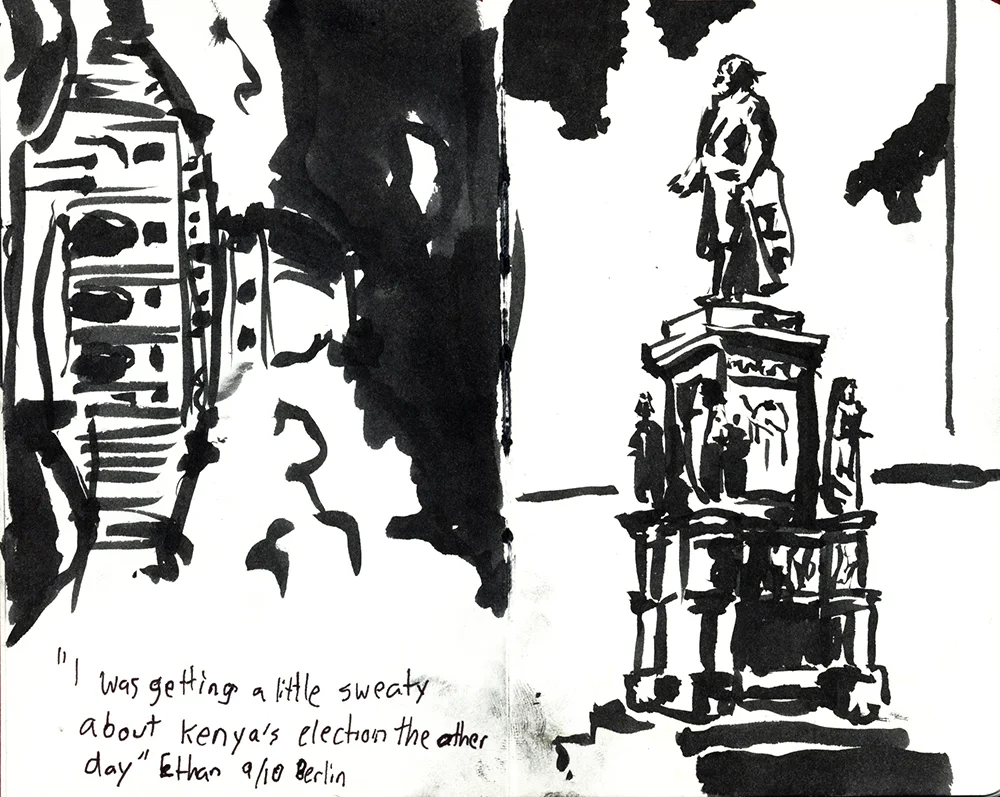 "I was getting a little sweaty
about Kenya's election the other
day" Ethan 9/10 Berlin